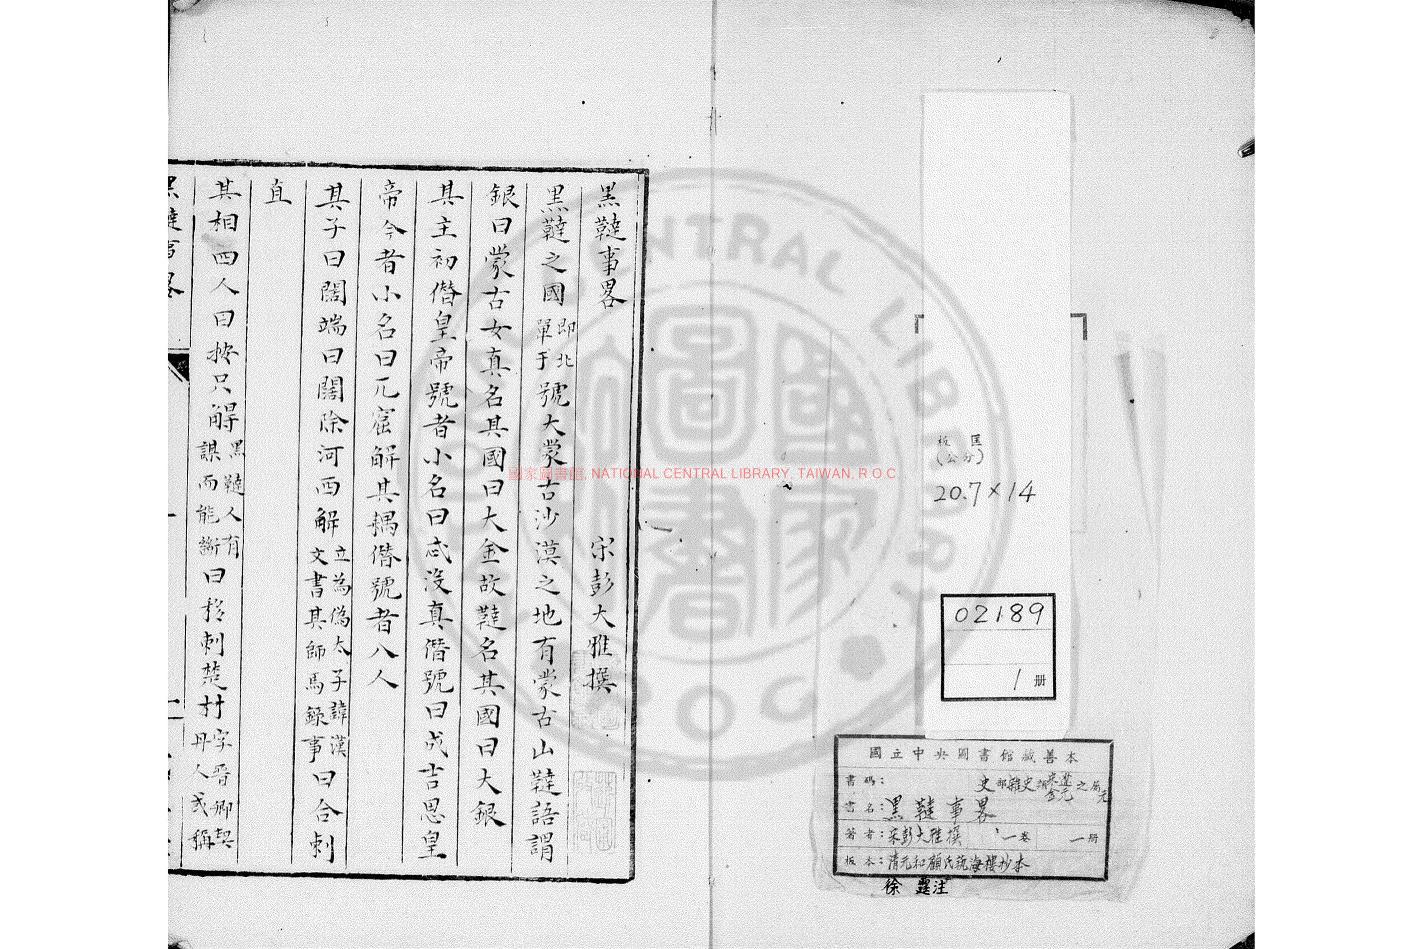 黑韃事畧
宋彭大雅撰
黑韃之國即北單于號大蒙古沙漠之地有蒙古山韃語謂
銀曰蒙古女真名其國曰大金故韃名其國曰大銀
其主初僭皇帝號者小名曰忒沒真僭號曰成吉思皇
帝今者小名曰兀窟解其耦僭號者八人
其子曰闊端曰闊除河西解立為偽太子諱漢文書其師馬錄事曰合刺
直
其相四人曰按只觧黑韃人有謀而能斷曰移剌楚材字晋卿契丹人或稱
黑韃事畧
一
國家圖書館, NATIONAL CENTRAL LIBRARY, TAIWAN, R.O.C
NATIONAL CENTRAL LIBRARY
ROC
國家圖書
板匡
(公分)
20.7×14
02189
1 册
國立中央圖書館藏善本
書碼: 史部雜史類 之屬
書名:黑韃事畧
著者:宋彭大雅撰 一卷 一册
板本:清元和顧氏藝海樓抄本
徐霆注